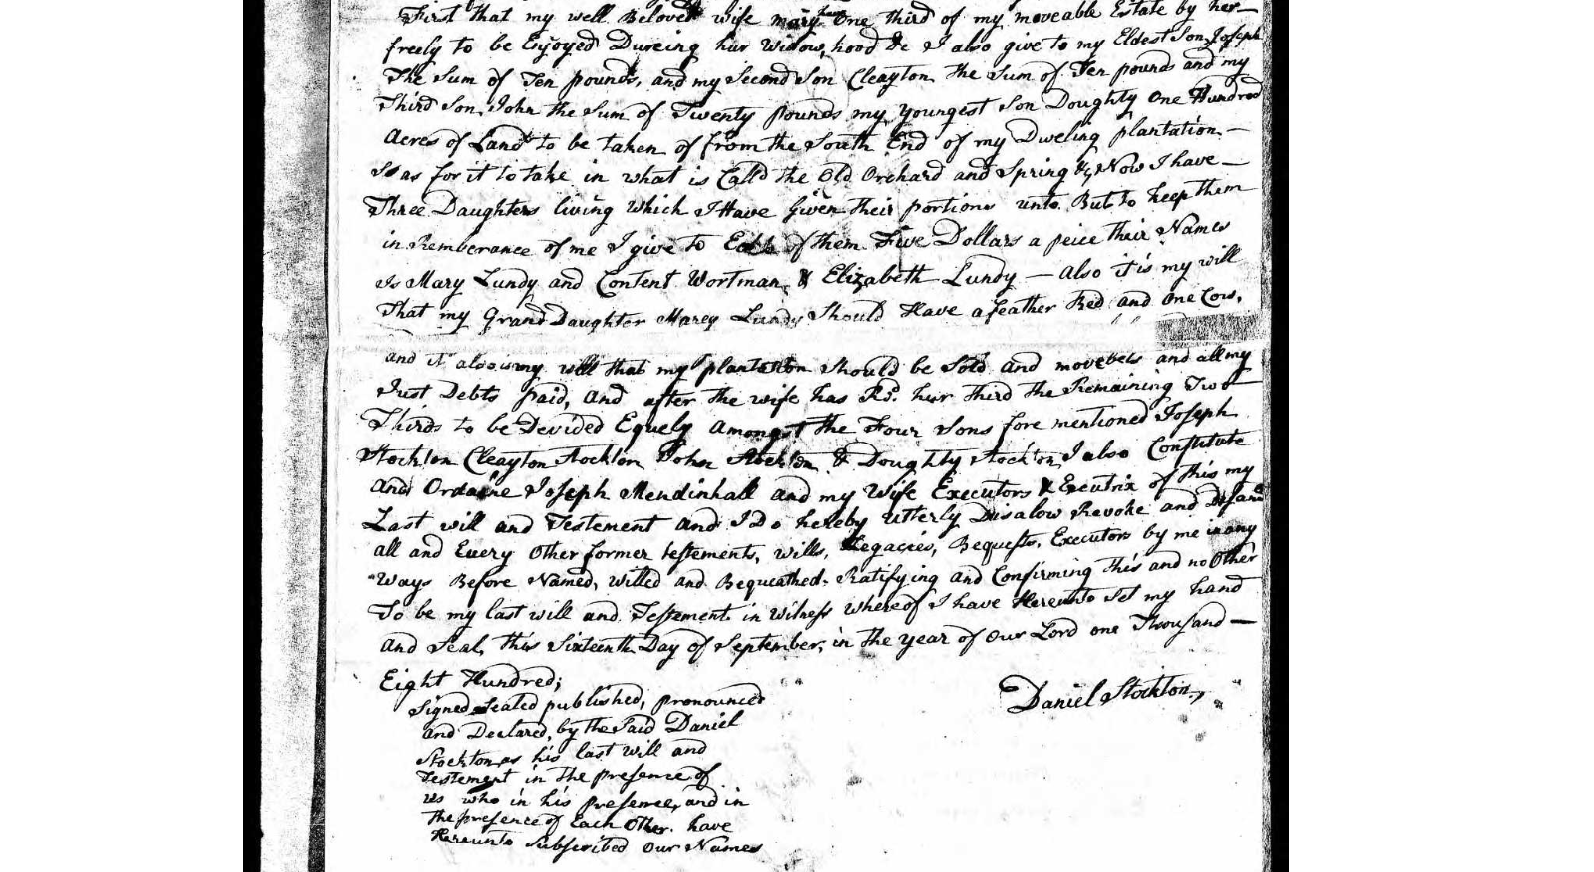 First that my well Beloved wife mary have One third of my moveable Estate by her—
freely to be Enjoyed Dureing hur Widowhood &c I also give to my Eldest Son Joseph
The Sum of Ten pounds, and my Second Son Cleayton the Sum of Ten pounds and my
Third Son John the Sum of Twenty pounds my youngest Son Doughty One Hundred
Acres of Land to be taken of from the South End of my Dweling plantation—
So as for it to take in what is Calld the Old Orchard and Spring &c Now I have—
Three Daughters living Which I Have Given their portions unto But to keep them
in Remberance of me I give to Each of them Five Dollars a peice their Names
Is Mary Lundy and Content Wortman & Elizabeth Lundy — Also it is my will
That my Grand Daughter Marey Lundy Should Have a feather Bed and One Cow,
and it also is my will that my plantation Should be Sold and movebels and all my
Just Debts paid, and after the wife has Rd. hur third the Remaining Two—
Thirds to be Devided Equely amongst the Four Sons fore mentioned Joseph
Stockton Cleayton Stockton John Stockton & Doughty Stockton I also Constitute
And Ordaine Joseph Mendinhall and my Wife Executors & Executrix of this my
Last will and Testement and I Do hereby utterly Disalow Revoke and
all and Every Other former testements, wills, Legacies, Bequests, Executors by me in any
Ways Before Named, willed and Bequeathed. Ratifying and Confirming this and no Other
To be my last will and Testement in Witness whereof I have Hereunto Set my hand
and Seal, this Sixteenth Day of September, in the year of Our Lord one Thousand—
Eight Hundred;
Signed Sealed published, pronounced
and Declared, by the Said Daniel
Stockton as his last will and
Testement in the presence of
us who in his presence, and in
the presence of Each Other have
Hereunto Subscribed Our Names
Daniel Stockton